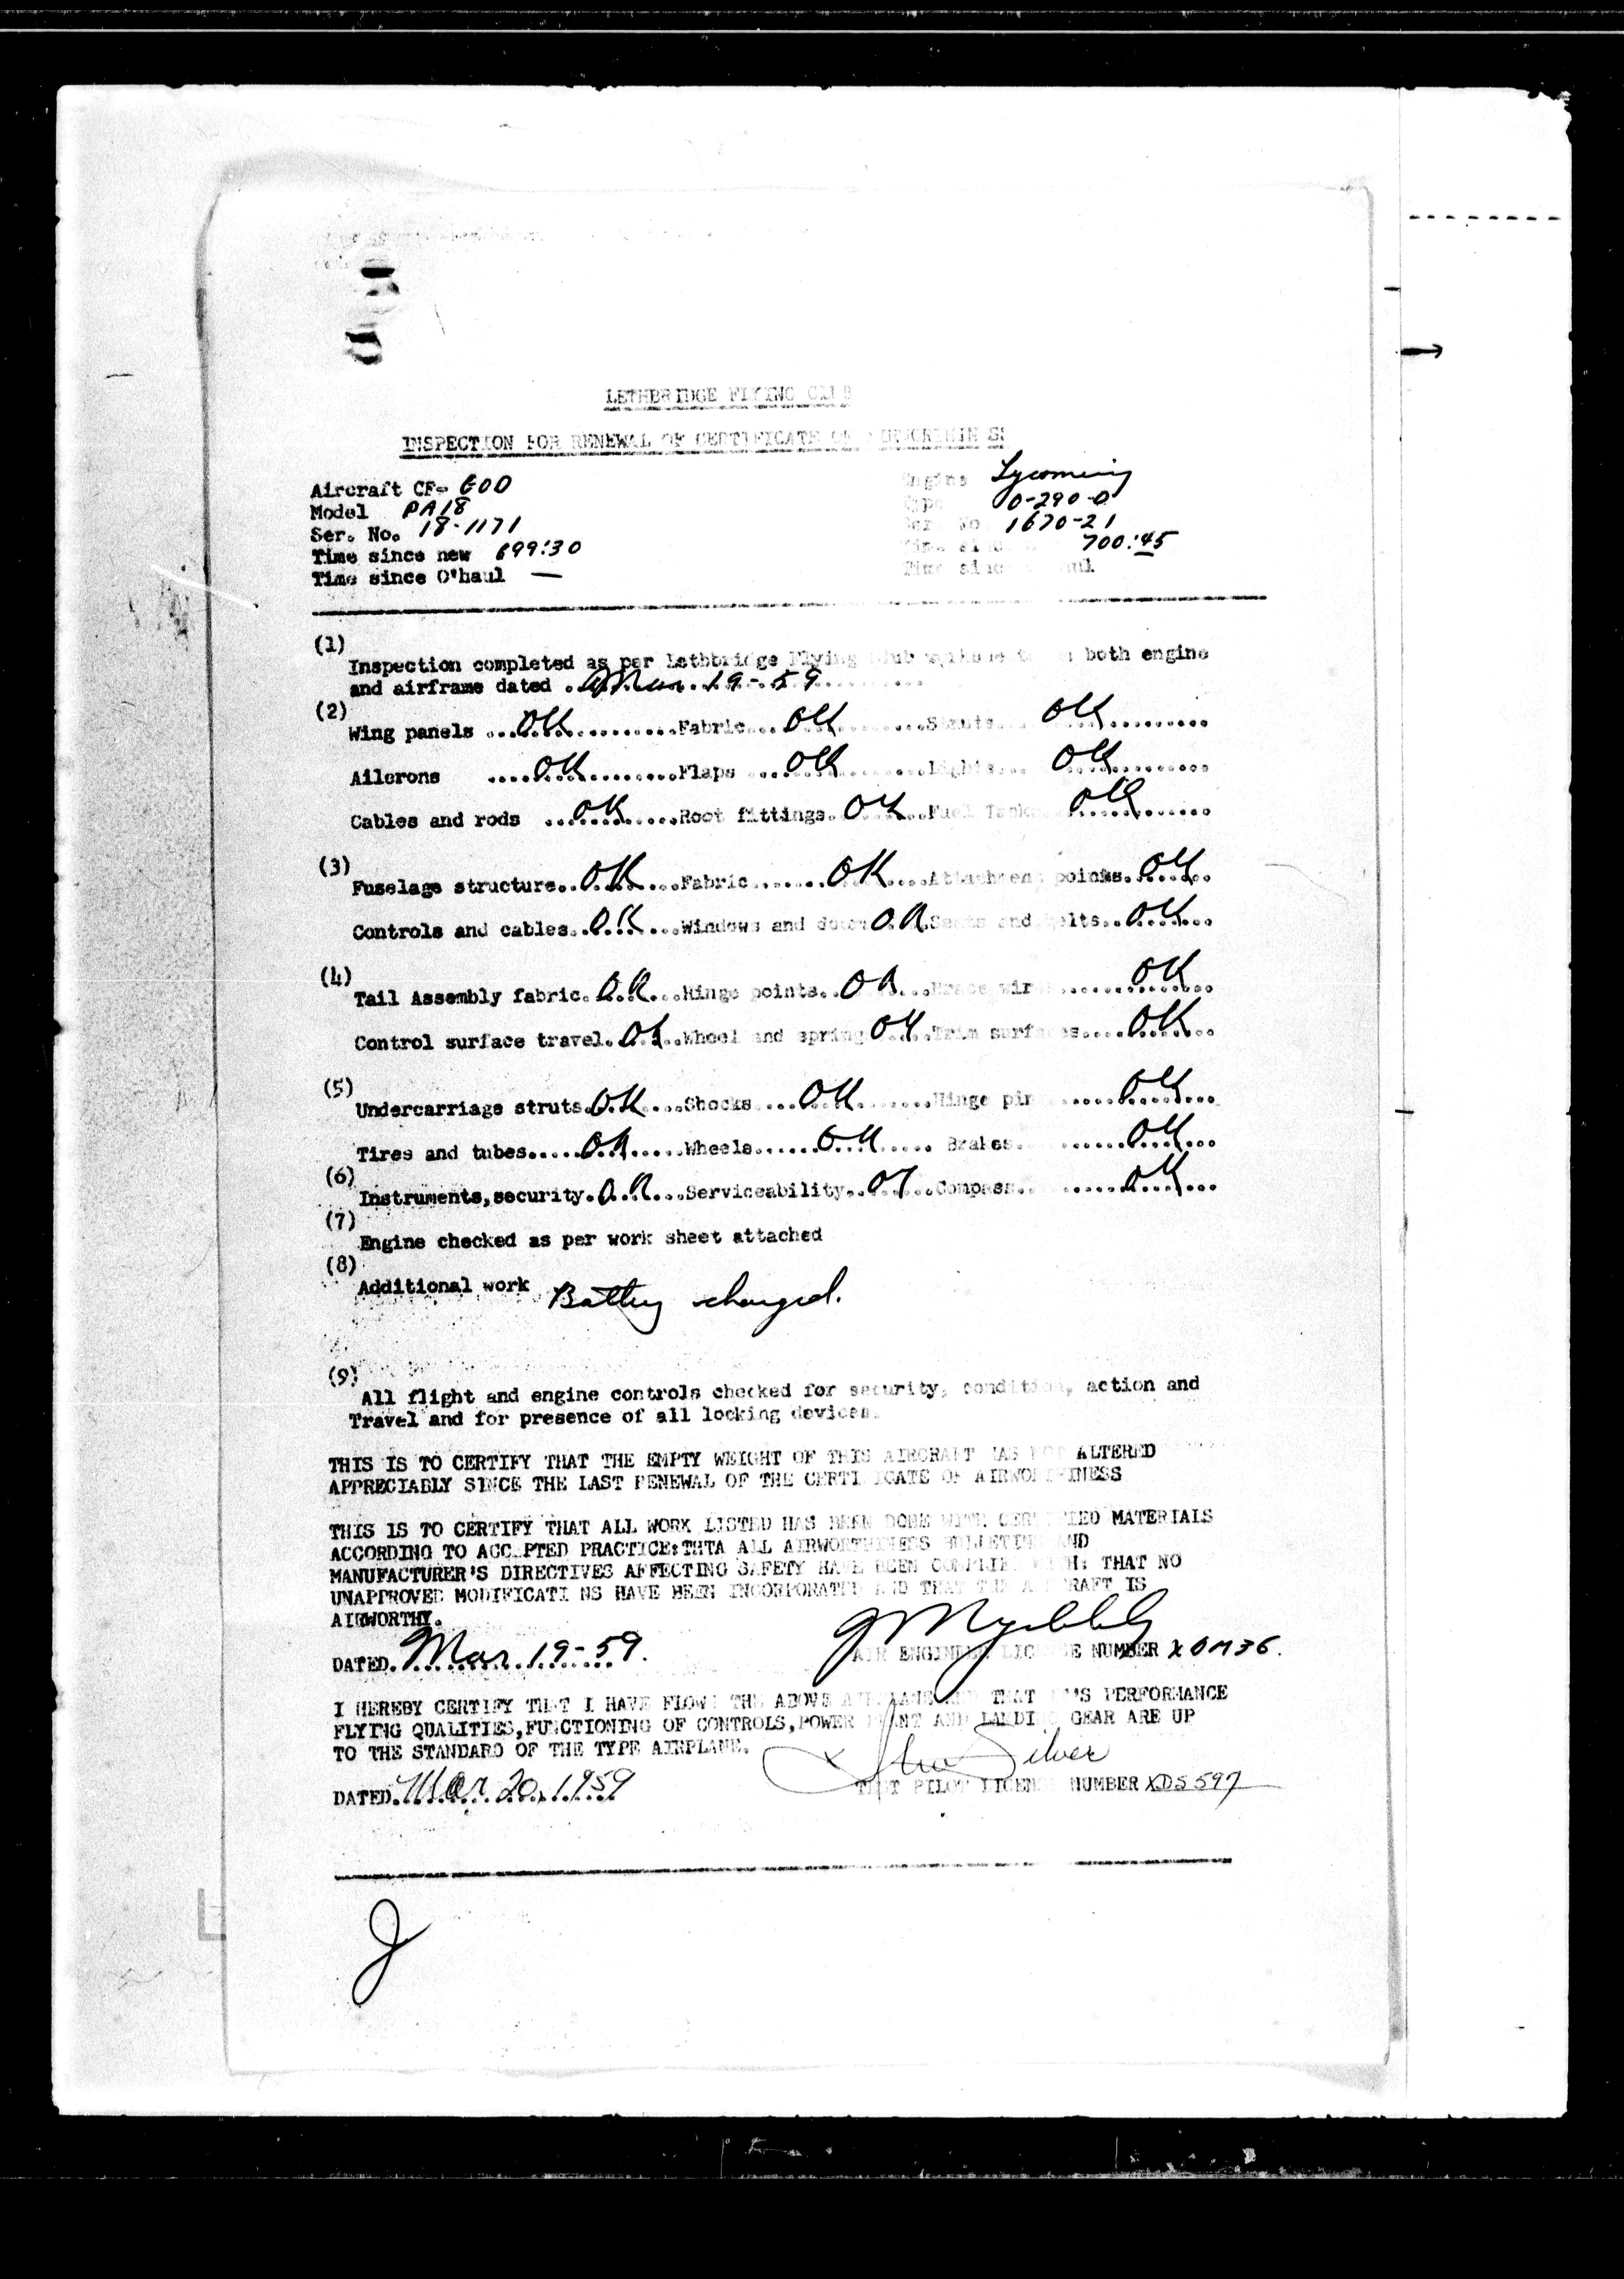 LETHBRIDGE FLYING CLUB
INSPECTION FOR RENEWAL OF CERTIFICATE OF
Aircraft CF- GOO Engine Lycoming
Model PA18 Type O-290-D
Ser. No. 18-1171 Ser No 1670-21
Time since new 699:30 Time since 700:45
Time since O'haul — Time since haul
(1)
Inspection completed as per Lethbridge Flying Club both engine
and airframe dated .Mar. 19-59
(2)
Wing panels ...OK...Fabric...OK...Struts...OK...
Ailerons ...OK...Flaps ...OK...Lights...OK...
Cables and rods ...OK...Root fittings.OK...Fuel Tank OK...
(3)
Fuselage structure..OK...Fabric...OK...Attachment points.OK...
Controls and cables..OK...Windows and doors OK.Seats and belts..OK...
(4)
Tail Assembly fabric.OK...Hinge points..OK...Brace wir ...OK...
Control surface travel.OK..Wheel and spring OK..Trim surfaces...OK...
(5)
Undercarriage struts.OK...Shocks...OK...Hinge pin ...OK...
Tires and tubes...OK...Wheels...OK... Brakes. ...OK...
(6)
Instruments,security.OK...Serviceability..OK...Compass. ...OK...
(7)
Engine checked as per work sheet attached
(8)
Additional work Battery changed.
(9)
All flight and engine controls checked for security, condition, action and
Travel and for presence of all locking devices.
THIS IS TO CERTIFY THAT THE EMPTY WEIGHT OF THIS AIRCRAFT HAS NOT ALTERED
APPRECIABLY SINCE THE LAST RENEWAL OF THE CERTIFICATE OF AIRWORTHINESS
THIS IS TO CERTIFY THAT ALL WORK LISTED HAS BEEN DONE WITH CERTIFIED MATERIALS
ACCORDING TO ACCEPTED PRACTICE:THTA ALL AIRWORTHINESS BULLETINS AND
MANUFACTURER'S DIRECTIVES AFFECTING SAFETY HAVE BEEN COMPLIED WITH: THAT NO
UNAPPROVED MODIFICATIONS HAVE BEEN INCORPORATED AND THAT THE AIRCRAFT IS
AIRWORTHY.
DATED.Mar. 19-59. AIR ENGINEER LICENSE NUMBER XOM36.
I HEREBY CERTIFY THAT I HAVE FLOWN THE ABOVE AIRPLANE AND THAT IT'S PERFORMANCE
FLYING QUALITIES,FUNCTIONING OF CONTROLS,POWER PLANT AND LANDING GEAR ARE UP
TO THE STANDARD OF THE TYPE AIRPLANE. Silver
DATED.Mar 20, 1959 TEST PILOT LICENSE NUMBER XDS597